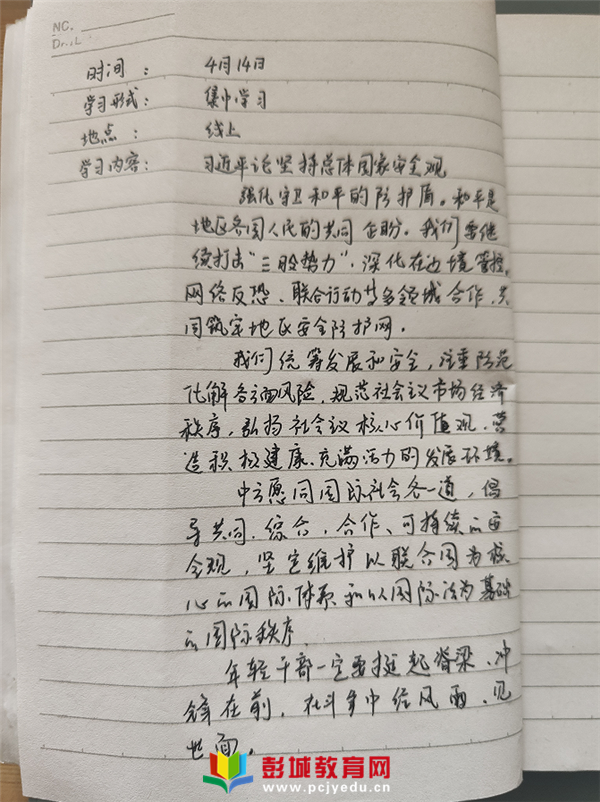 NO.
时间： 4月14日
学习形式： 集中学习
地点： 线上
学习内容： 习近平论坚持总体国家安全观
强化守卫和平的防护盾。和平是
地区各国人民的共同企盼。我们要继
续打击“三股势力”，深化在边境管控、
网络反恐、联合行动等多领域合作，共
同筑牢地区安全防护网。
我们统筹发展和安全，注重防范
化解各方面风险，规范社会议市场经济
秩序，弘扬社会议核心价值观，营
造积极健康、充满活力的发展环境。
中方愿同国际社会各一道，倡
导共同、综合、合作、可持续的安
全观，坚定维护以联合国为核
心的国际体系和以国际法为基础
的国际秩序。
年轻干部一定要挺起脊梁、冲
锋在前，在斗争中经风雨、见
世面。
彭城教育网
www.pcjyedu.cn